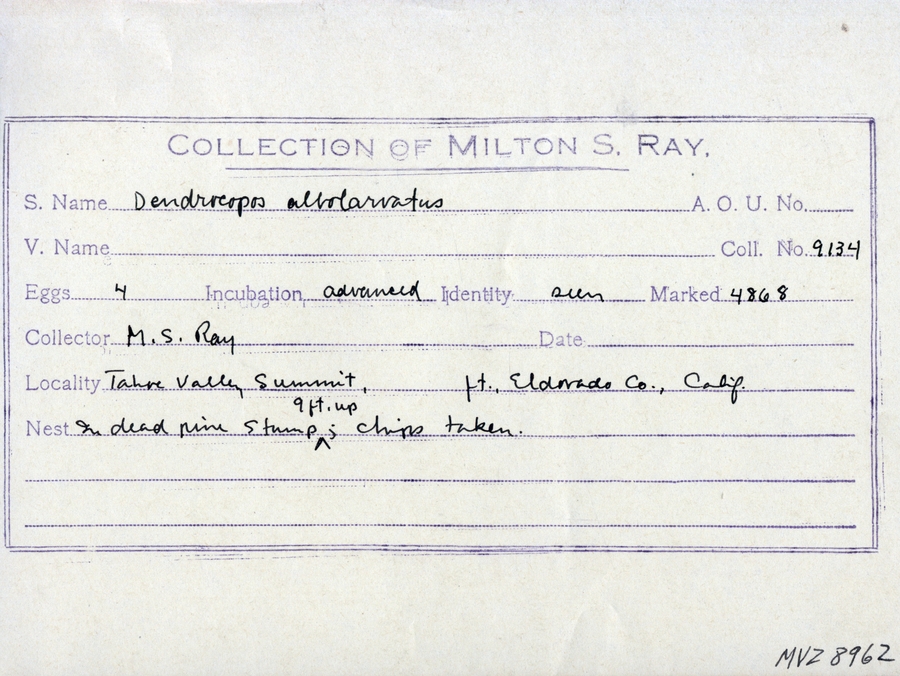 COLLECTION OF MILTON S. RAY.
S. Name Dendrocopos albolarvatus A. O. U. No.
V. Name Coll. No. 9134
Eggs 4 Incubation advanced Identity seen Marked 4868
Collector M. S. Ray Date
Locality Tahoe Valley Summit, ft., Eldorado Co., Calif.
9 ft. up
Nest In dead pine stump ^; chips taken.
MVZ 8962